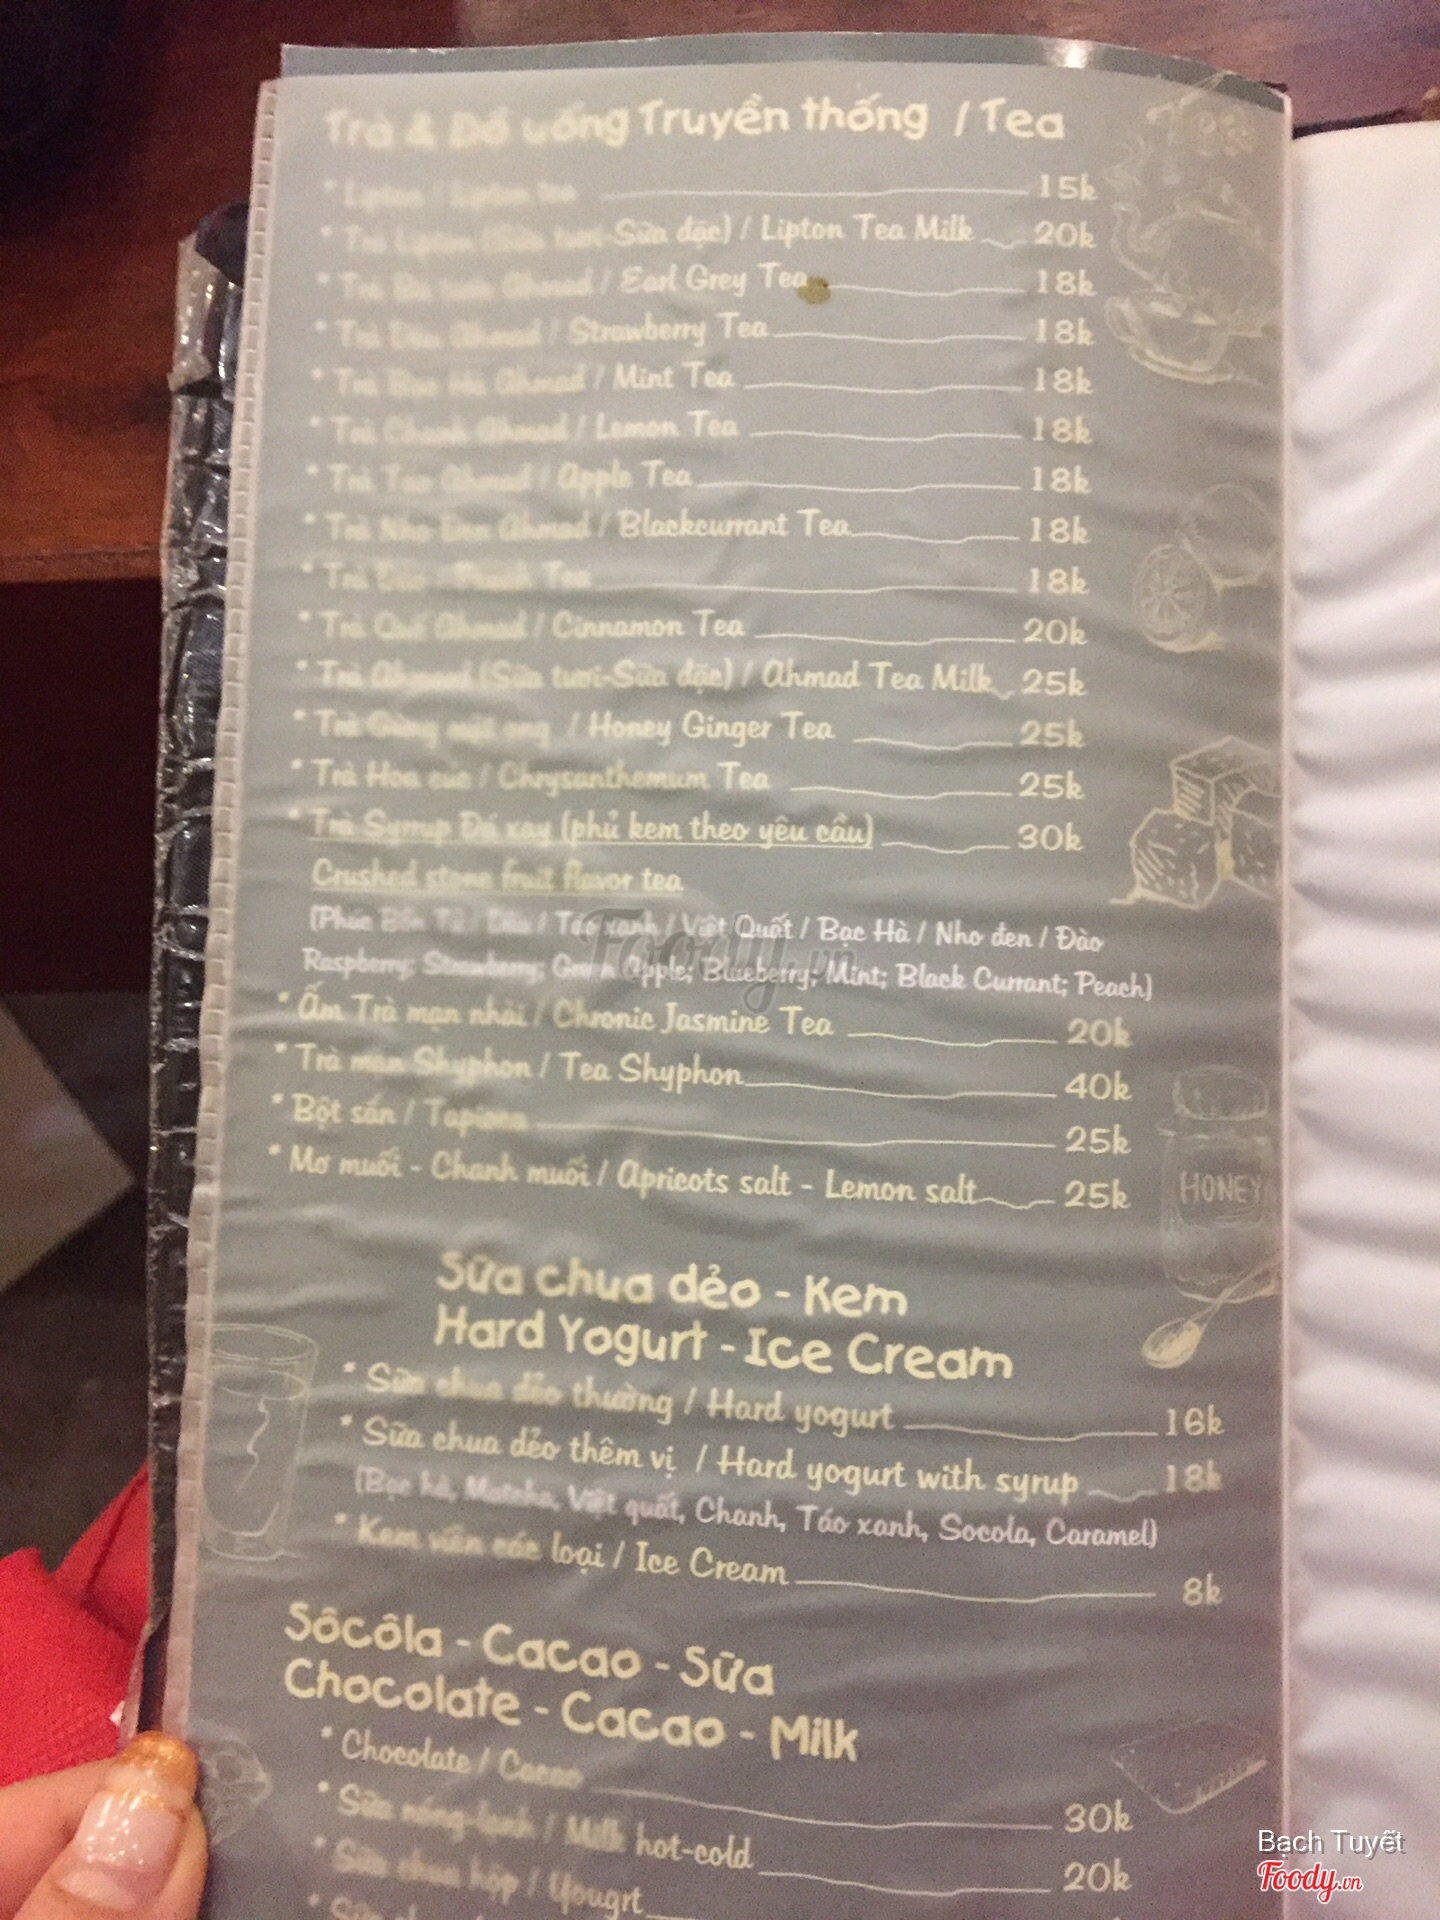 Trà & Đồ uống Truyền thống / Tea
* Lipton / Lipton tea 15k
* Trà Lipton (Sữa tươi-Sữa đặc) / Lipton Tea Milk 20k
* Trà Ahmad / Earl Grey Tea 18k
* Trà Dâu Ahmad / Strawberry Tea 18k
* Trà Bạc Hà Ahmad / Mint Tea 18k
* Trà Chanh Ahmad / Lemon Tea 18k
* Trà Táo Ahmad / Apple Tea 18k
* Trà Nho Đen Ahmad / Blackcurrant Tea 18k
* Trà Đào / Peach Tea 18k
* Trà Quế Ahmad / Cinnamon Tea 20k
* Trà Ahmad (Sữa tươi-Sữa đặc) / Ahmad Tea Milk 25k
* Trà Gừng mật ong / Honey Ginger Tea 25k
* Trà Hoa cúc / Chrysanthemum Tea 25k
* Trà Syrrup Đá xay (phủ kem theo yêu cầu) 30k
Crushed stone fruit flavor tea
(Phúc Bồn Tử / Dâu / Táo xanh / Việt Quất / Bạc Hà / Nho đen / Đào
Raspberry; Strawberry; Green Apple; Blueberry; Mint; Black Currant; Peach)
* Ấm Trà mạn nhài / Chronic Jasmine Tea 20k
* Trà mạn Shyphon / Tea Shyphon 40k
* Bột sắn / Tapioca 25k
* Mơ muối - Chanh muối / Apricots salt - Lemon salt 25k
HONEY
Sữa chua dẻo - Kem
Hard Yogurt - Ice Cream
* Sữa chua dẻo thường / Hard yogurt 16k
* Sữa chua dẻo thêm vị / Hard yogurt with syrup 18k
(Bạc hà, Matcha, Việt quất, Chanh, Táo xanh, Socola, Caramel)
* Kem viên các loại / Ice Cream 8k
Sôcôla - Cacao - Sữa
Chocolate - Cacao - Milk
* Chocolate / Cacao 30k
* Sữa nóng-lạnh / Milk hot-cold 20k
* Sữa chua hộp / Yougrt
Foody.vn
Bạch Tuyết
Foody.vn